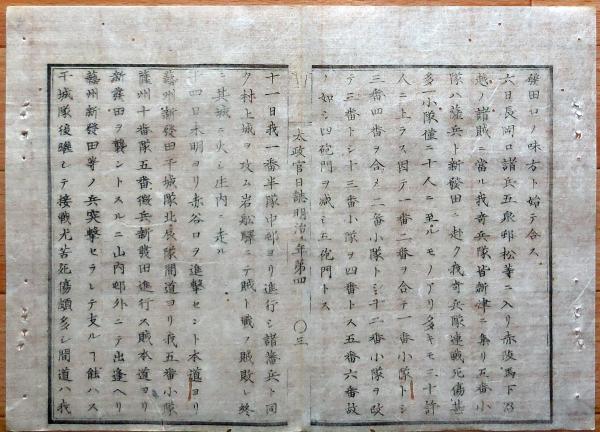 發田口ノ味方ト始テ合ス
六日長岡口諸兵五泉邨松等ニ入リ赤坂馬下沼
越ノ諸賊ニ當ル我奇兵隊皆新津ニ集リ五番小
隊ハ薩兵ト新發田ニ赴ク我奇兵隊連戰死傷甚
多一小隊僅ニ十人ニ至ルモノアリ多キモ三十許
人ニ上ラス因テ一番二番ヲ合テ一番小隊トシ
三番四番ヲ合メ二番小隊トシ十二番小隊ヲ改
テ三番トシ十三番小隊ヲ四番トス五番六番故
ノ如シ四砲門ヲ減シ三砲門トス
太政官日誌明治 年第四 〇三
十一日我一番半隊中邨ヨリ進行シ諸藩兵ト同
ク村上城ヲ攻ム岩船驛ニテ賊ト戰フ賊敗レ終
ニ其城ニ火シ庄内ニ走ル
十四日未明ヨリ赤谷口ヲ進擊セント本道ヨリ
藝州新發田干城隊北辰隊間道ヨリ我五番小隊
薩州十番隊五番徴兵新發田進行ス賊本道ヨリ
新發田ヲ襲ントスルニ山内邨外ニテ出逢ヘリ
藝州新發田等ノ兵突擊セラレテ支ルヿ能ハス
干城隊後殿シテ接戰尤苦死傷頗多シ間道ハ我